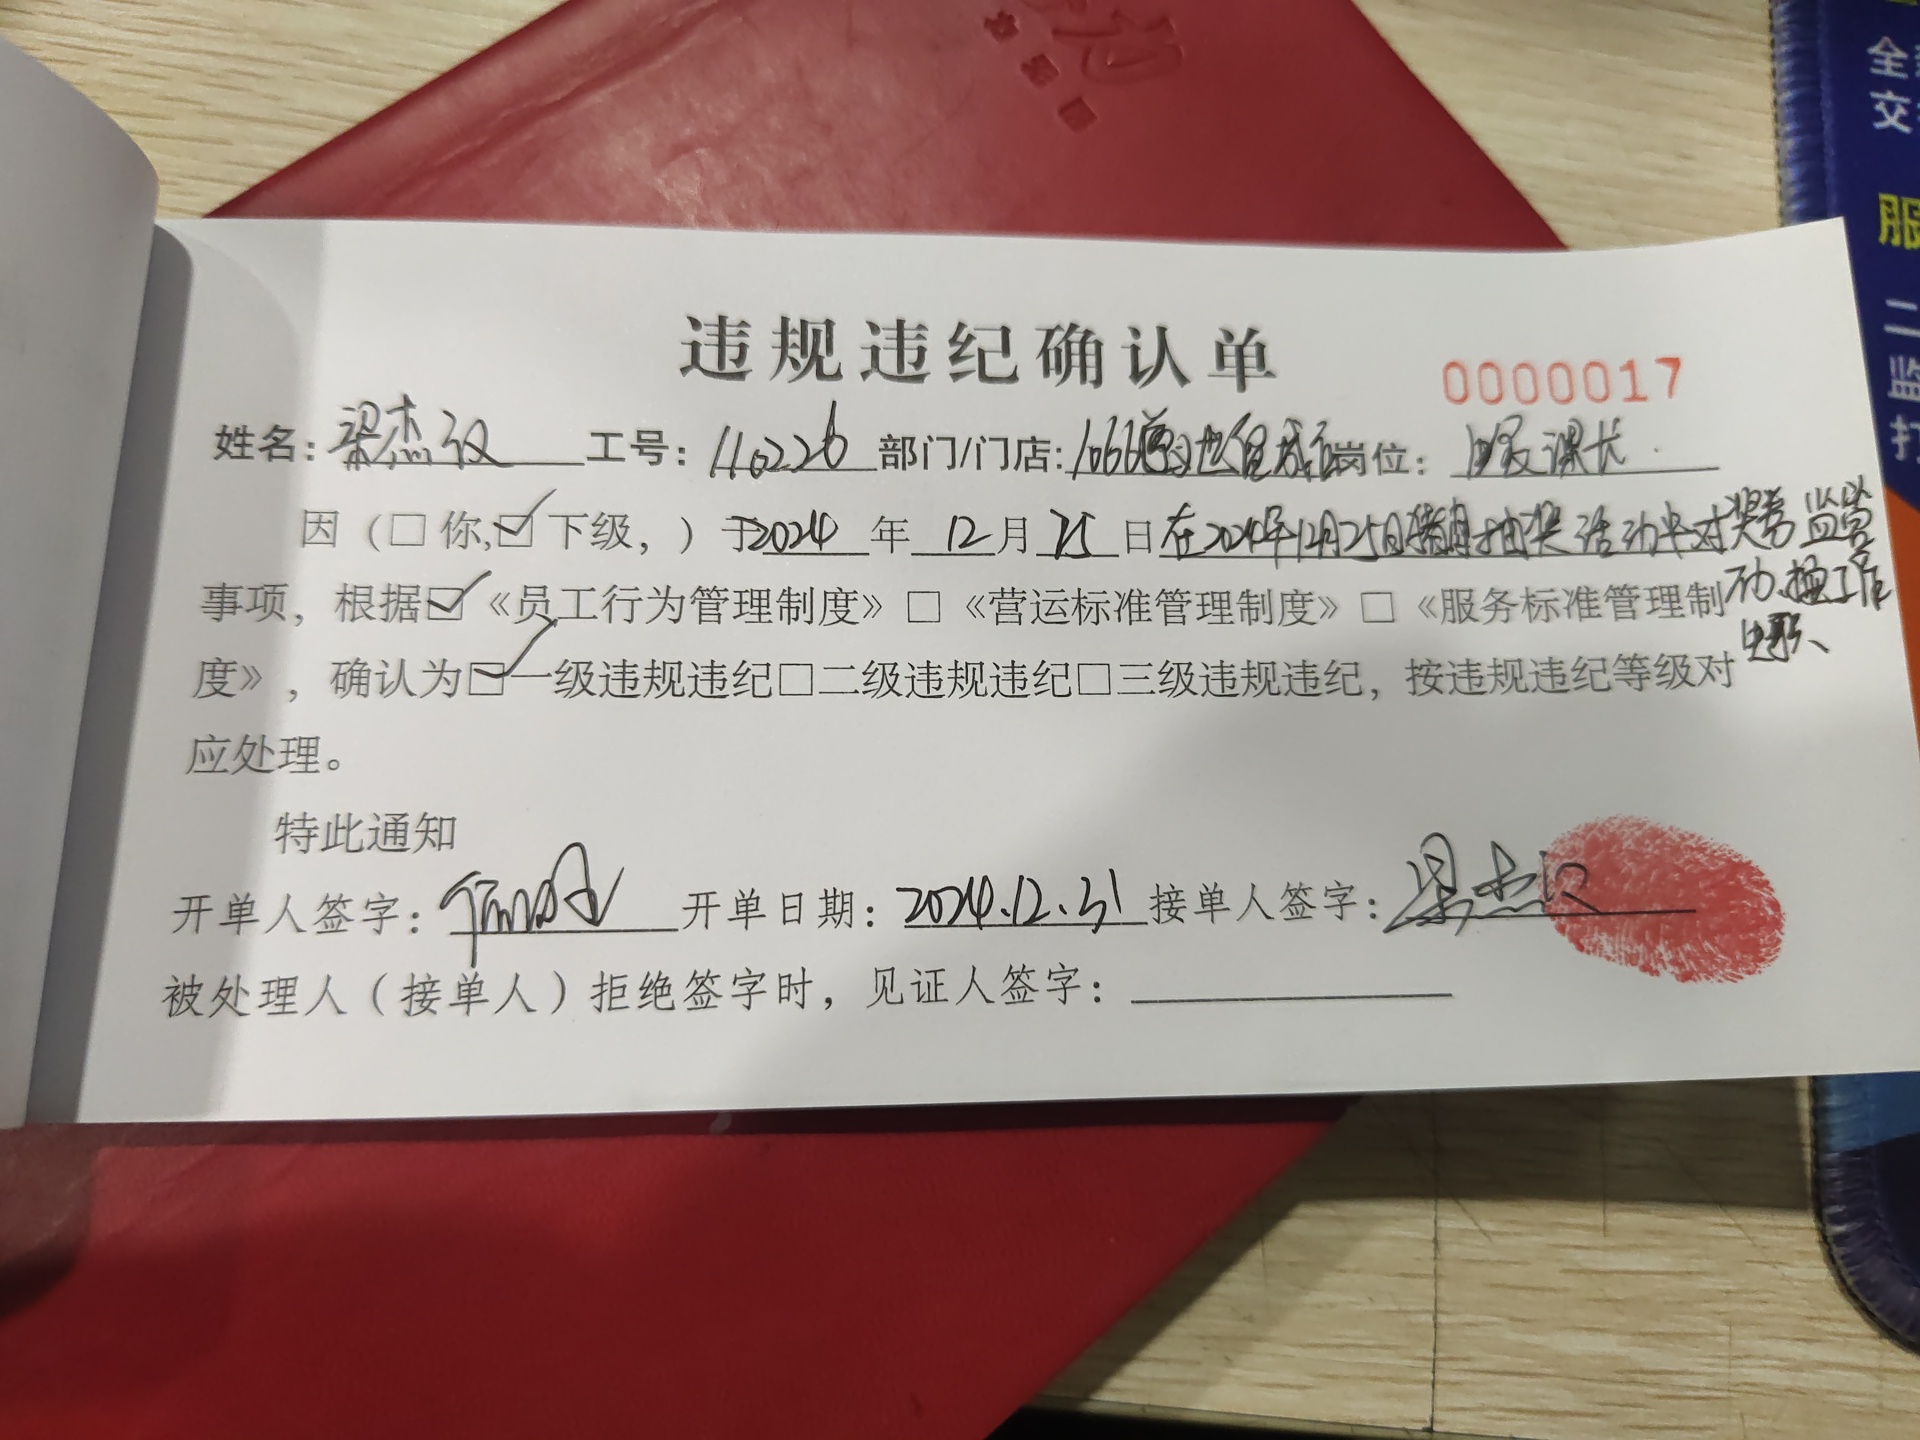 违规违纪确认单
0000017
姓名：梁杰 工号：110226 部门/门店：1066 岗位： 课长
因（□你,☑下级，）于2024年12月25日在2024年12月25日 抽奖活动中对奖券监管
事项，根据☑《员工行为管理制度》□《营运标准管理制
度》□《服务标准管理制 工作
度》，确认为☑一级违规违纪□二级违规违纪□三级违规违纪，按违规违纪等级对
应处理。
特此通知
开单人签字： 开单日期：2024.12.31 接单人签字：梁杰
被处理人（接单人）拒绝签字时，见证人签字：
全
交
服
二
监
打